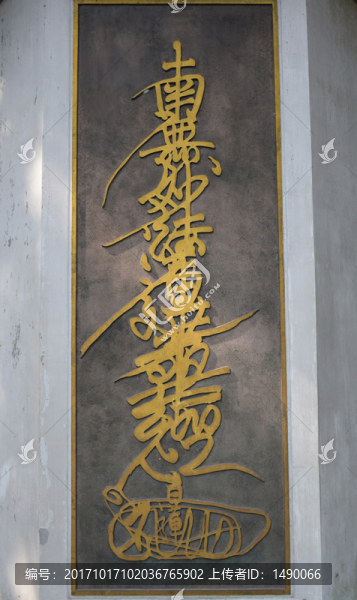 南無妙法蓮華經
日蓮
编号：20171017102036765902 上传者ID：1490066